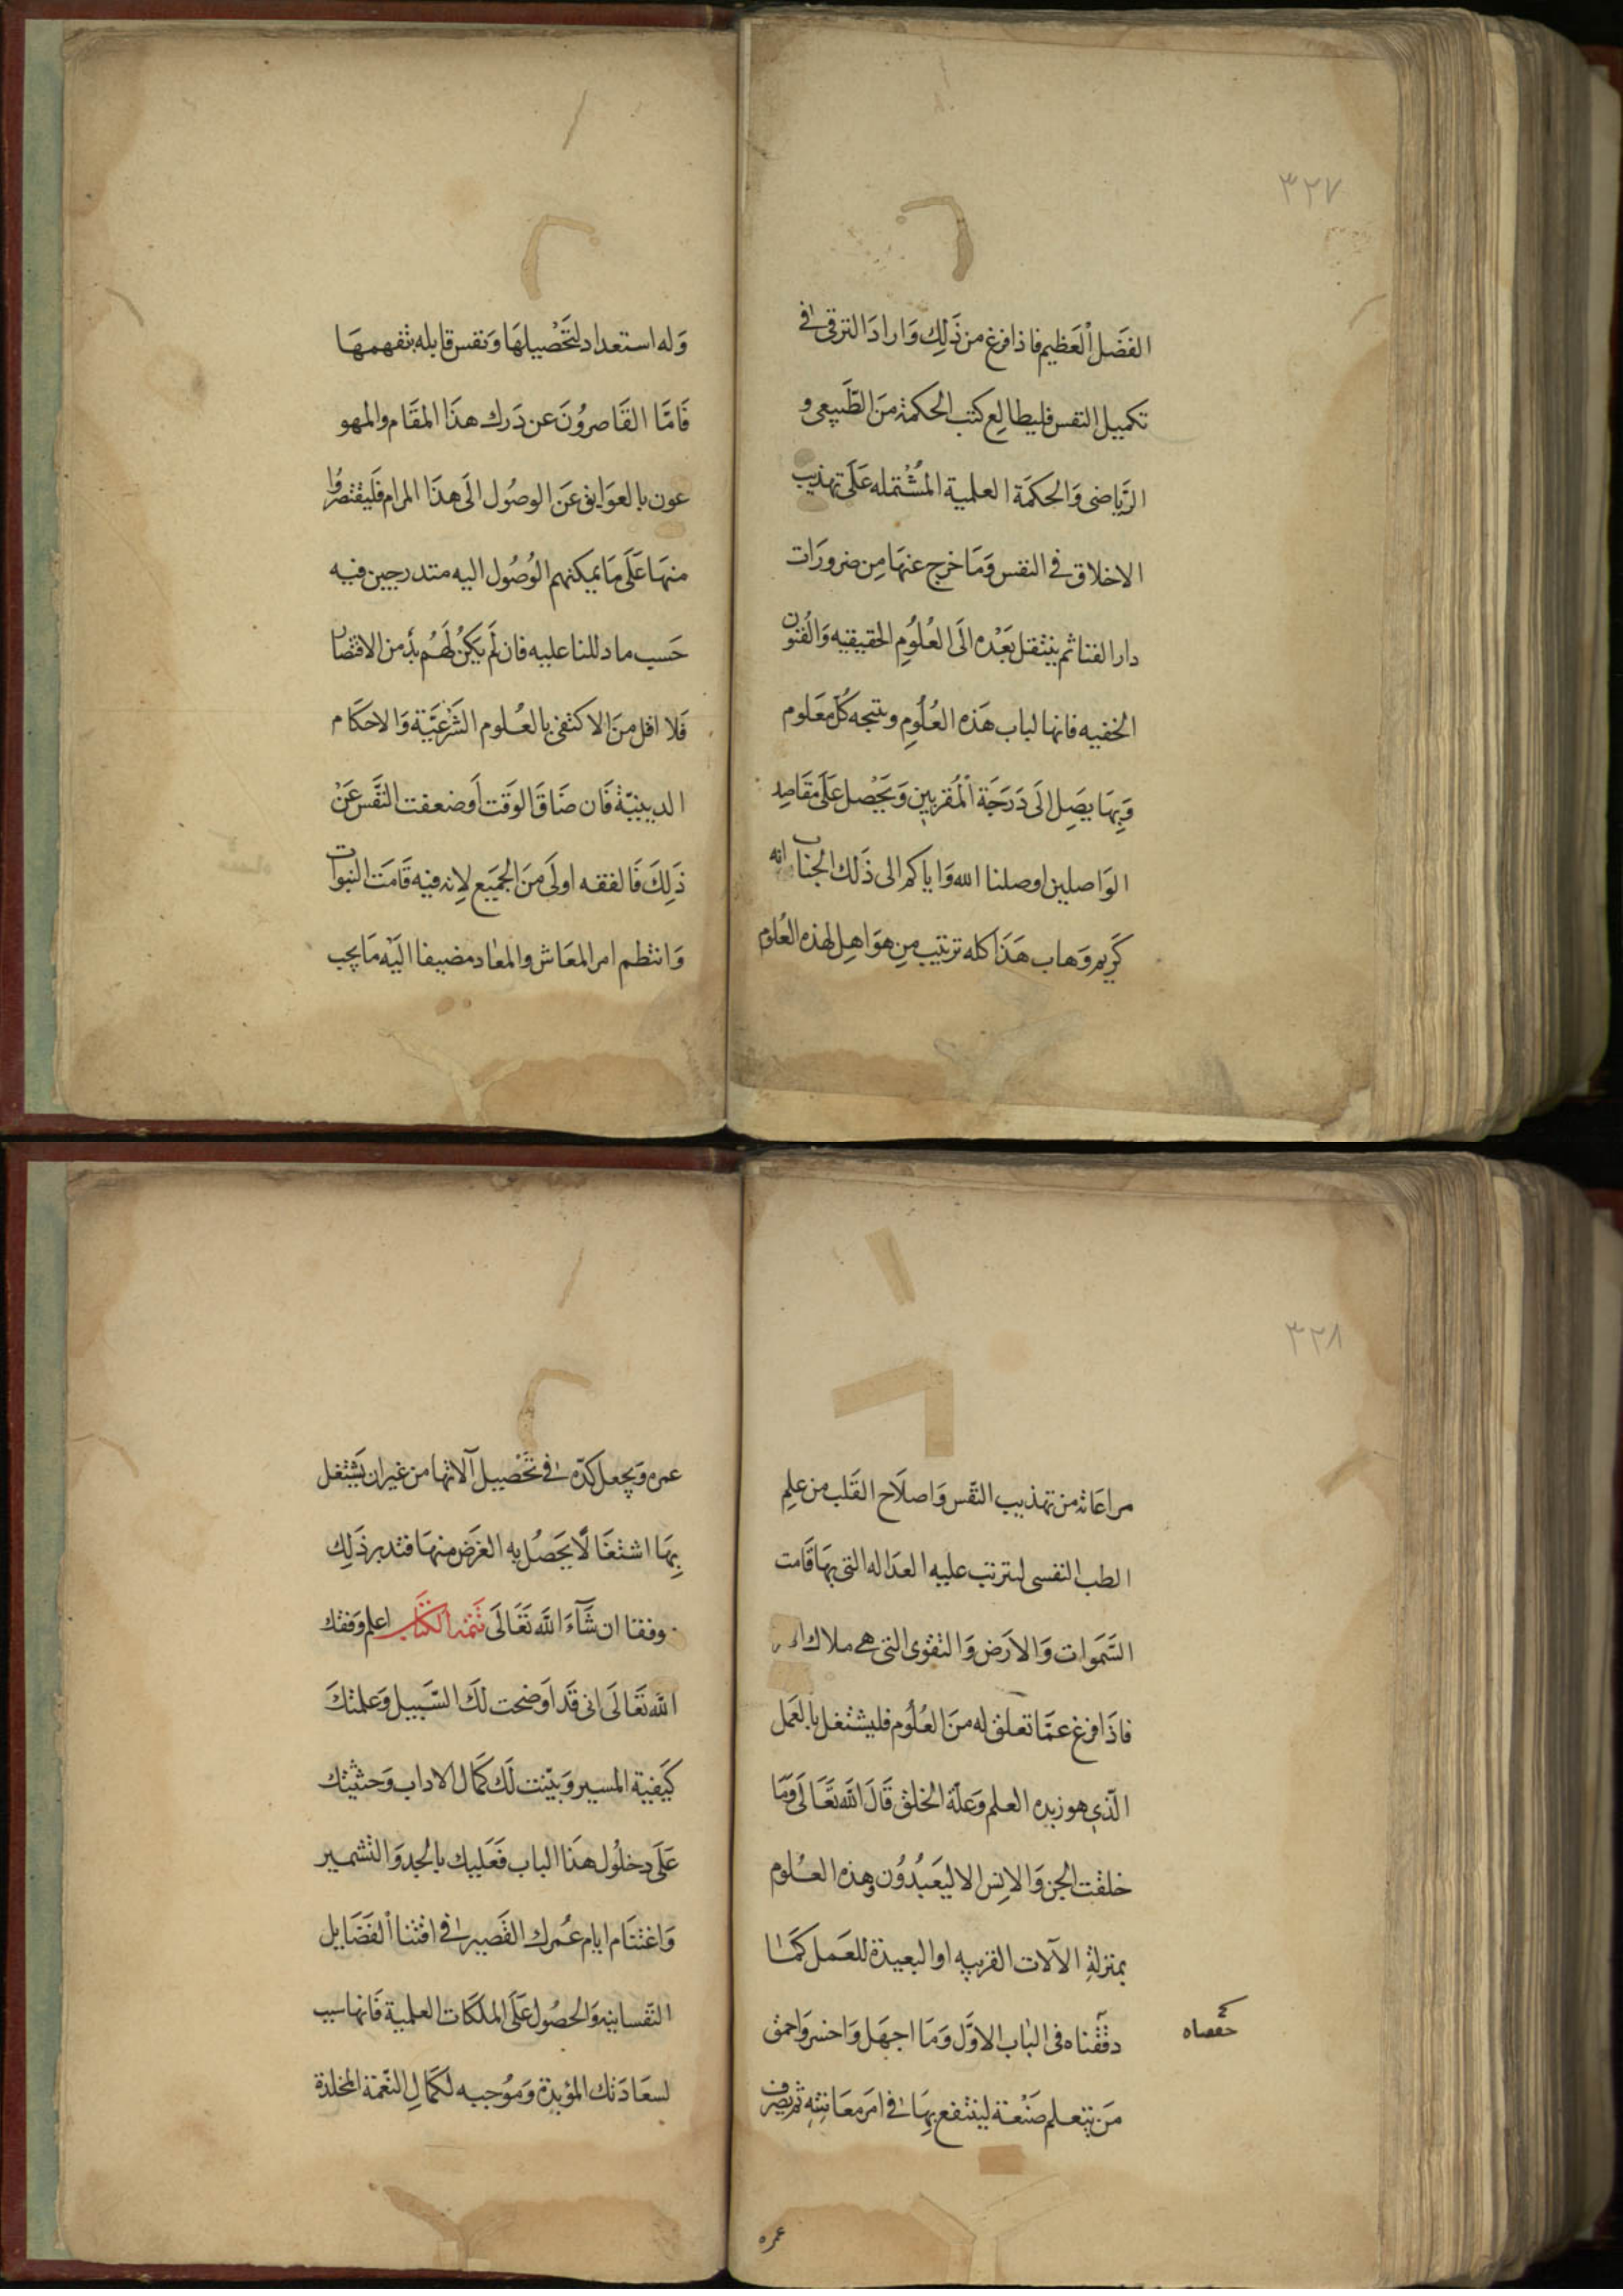 ٣٢٧
الفَضَل العَظيم فاذا فرغ من ذَلِك وَاراد الترقى فى
تكميل النفس فليطالع كتب الحكمة منَ الطَّبيعى و
الرّياضى وَالحكمَة العلمية المُشْتمله عَلَى تهذيب
الاخلاق فى النفس وَمَا خرج عنهَا مِن ضرورَات
دار الفنا ثم ينتقل بَعْده الَى العُلُوُمِ الحقيقيه وَالفنون
الخفيه فانها لباب هَذه العُلُومِ ونتيجه كُل مَعَلوم
وَبِهَا يصَِل الَى دَرَجَة المُقربين وَيَحْصل عَلَى مقَاصِد
الوَاصلين اوصلنا الله وَاياكم الى ذَلك الجناب انه
كَريم وَهاب هَذَا كله ترتيب مِن هوَ اهِل لهذه العُلوم
وَله استعداد لتَحْصيلهَا وَنفس قابله بتفهمهَا
فَامَّا القَاصرُونَ عن دَرك هذَا المقَام والمهو
عون بالعوَايق عَن الوصُول الَى هذَا المرام فَليقتصرُوا
منهَا عَلَى مَا يمكنهم الوُصُول اليه متدرجين فيه
حَسب ما دللنا عليه فان لَم يَكنُ لَهُم بدّ من الاقتصار
فَلا اقل منَ الاكتفى بالعُلوم الشَّرْعيَّة وَالاحكَام
الدينيّة فَان ضَاقَ الوَقت اَو ضعفت النَّفَس عَنْ
ذَلِكَ فَالفقه اولَى منَ الجمَيع لِانه فيه قَامَت النبوات
وَانتظم امر المعَاش والمعَاد مضيفا اليَه مَا يجب
٣٢٨
مراعَاته من تهذيب النّفس وَاصلَاح القَلب من علِم
الطب النفسى ليترتب عليه العدَاله التى بهَا قَامت
السَّمَوات وَالارَض وَالتقوى التى هى ملاك
فاذَا فرغ عمَّا تعلق له منَ العُلُوم فليشتغل بالعَمل
الّذى هو زبده العلم وَعلّة الخلق قَالَ الله تَعَالَى وَمَا
خلقت الجن وَالانِس الا ليَعَبدُوُن وهذه العُلوم
بمنزلةِ الآلات القريبه او البعيدة للعَمل كَمَا
دقّقناه فى البَاب الاوَّل وَمَا اجهَل وَاخسر وَاحمق
حققناه
مَن يتعلم صَنْعَة لينتفع بِهَا فى امَر مَعَاشه ثم يصرف
عمره
عمره وَيجعل كدّه فى تَحْصيل آلاتها من غير ان يَشتغل
بِهَا اشتغَالًا يَحَصُل به الغَرَض منهَا فتدبر ذَلِك
موفقا ان شَآءَ اللَّه تَعَالَى تتمَة الكتَاب اعلم وَفقك
الله تَعَالَى انى قَد اوَضحت لَكَ السَّبيل وَعلمتكَ
كيَفية المسير وَبيّنت لَك كَمَال الاداب وَحثثتك
عَلَى دخلُول هذَا الباب فَعَليك بالجد وَالتشمير
وَاغتنَام ايام عُمرك القَصير فى اقتنا الفَضَايل
النّفسانيه وَالحصُول عَلَى الملكَات العلمية فَانها سبب
لسعَادَتك المؤبدة وَموُجبه لكمَالِ النّعمَة المُخلدة